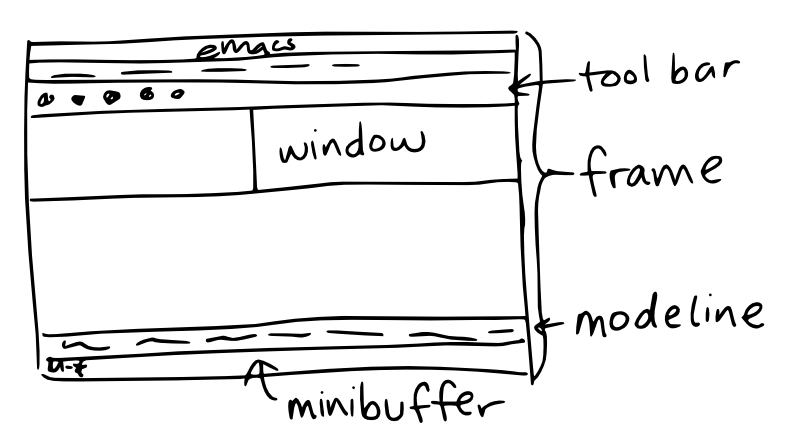 emacs
tool bar
window
frame
modeline
minibuffer